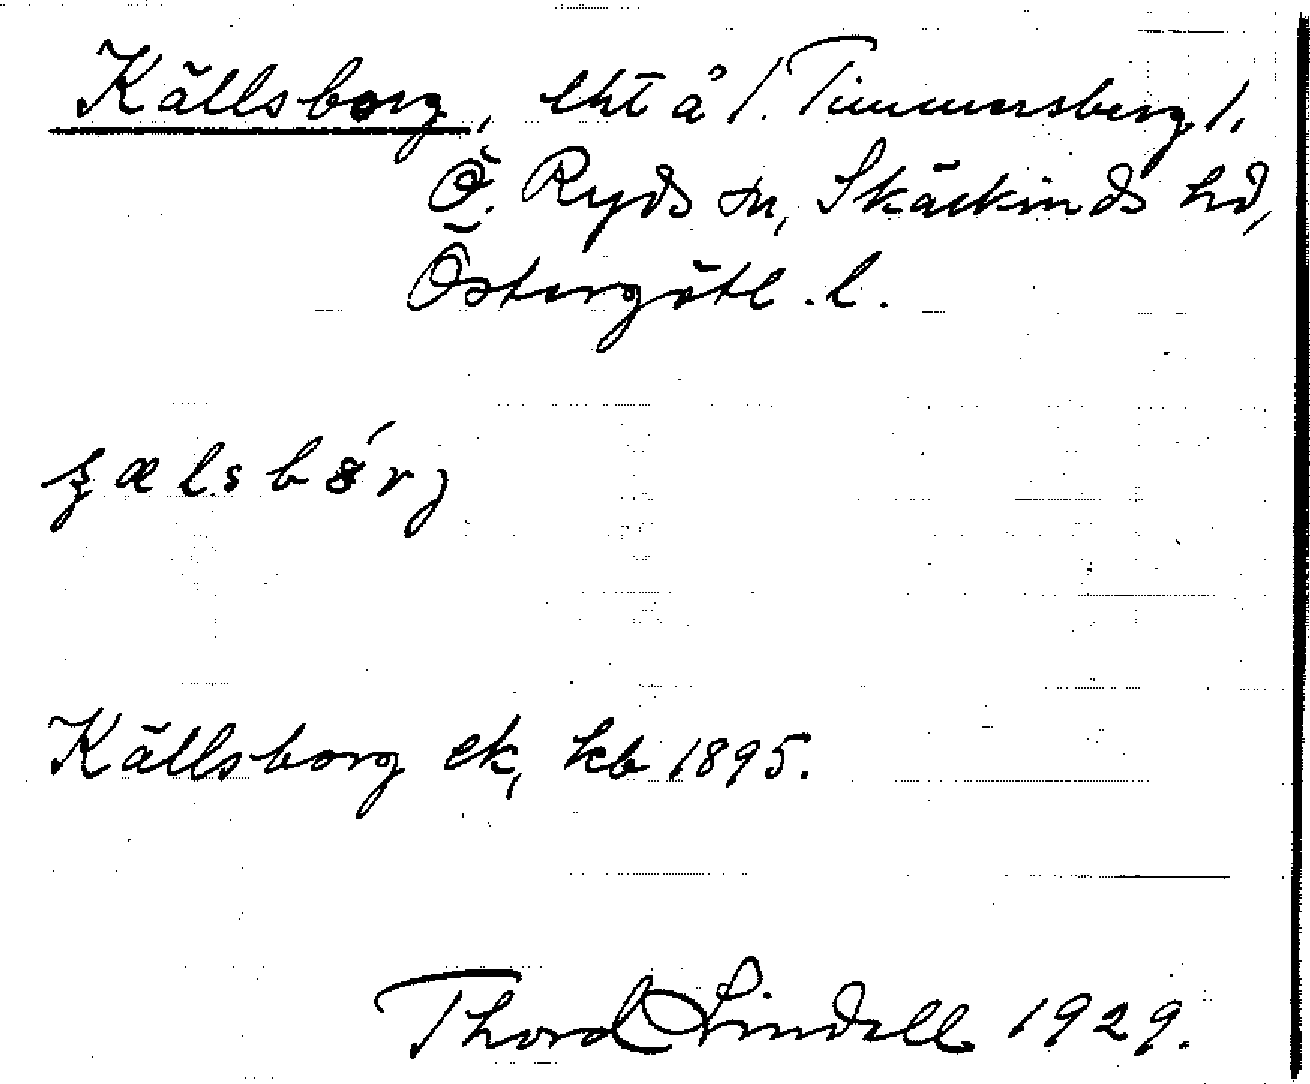 Källsborg, lht å /. Timmersberg /.
Ö. Ryds sn, Skärkinds hd,
Östergötl. l.
Källsborg ek, kb 1895.
Thord Lindell 1929.